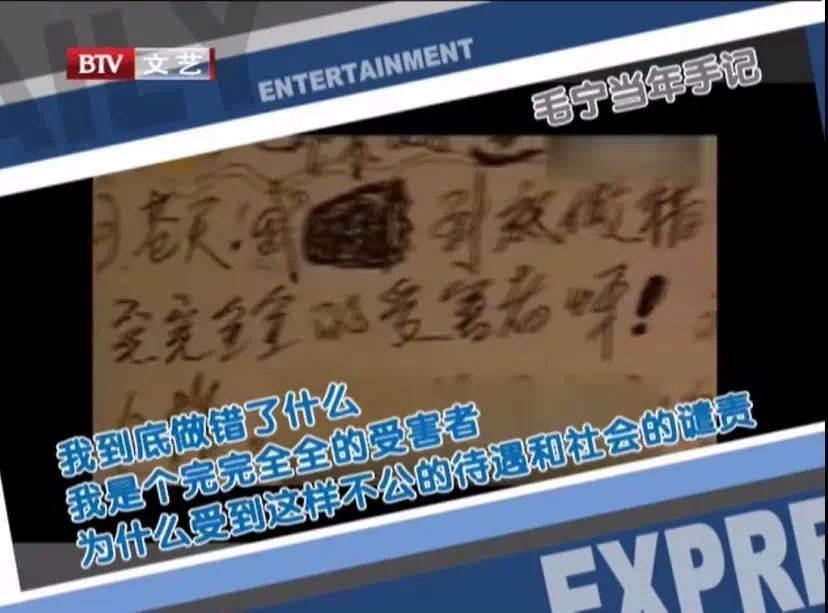 BTV 文艺
ENTERTAINMENT
毛宁当年手记
苍天!我 到底做错
完完全全的受害者呀!
我到底做错了什么
我是个完完全全的受害者
为什么受到这样不公的待遇和社会的谴责
EXPRE